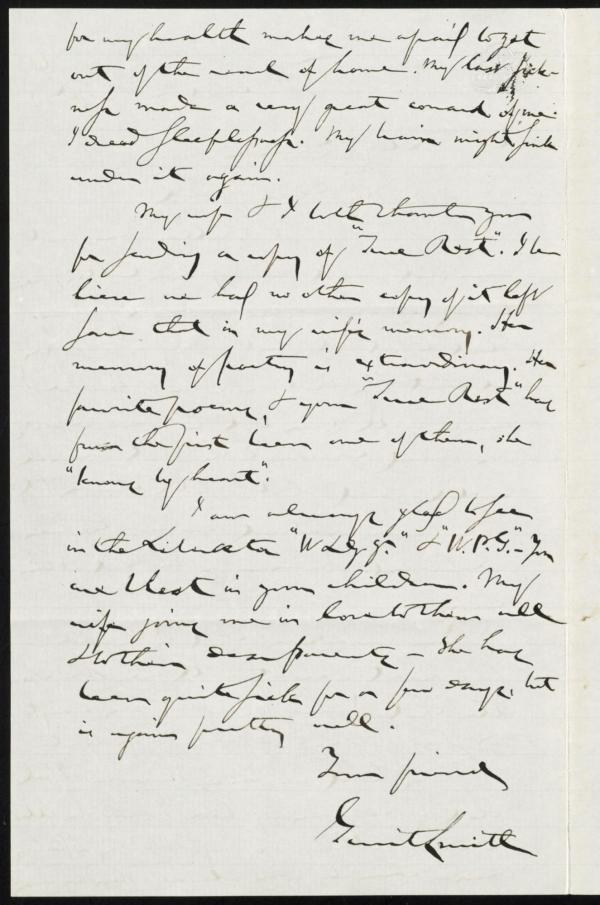 for my health makes me afraid to get
out of the reach of home. My last sick-
ness made a very great coward of me.
I dread sleeplessness. My brain might sink
under it again.
My wife & I both thank you
for sending a copy of "True Rest". I be-
lieve we had no other copy of it left
save that in my wife's memory. Her
memory of poetry is extraordinary. Her
favorite poems, & your "True Rest" has
from the first been one of them, she
"knows by heart".
I am always glad to see
in the Liberator "W. L. G. Jr." & "W. P. G." - You
are blest in your children. My
wife joins me in love to them all
& to their dear parents - She has
been quite sick for a few days, but
is again pretty well.
Your friend
Gerrit Smith